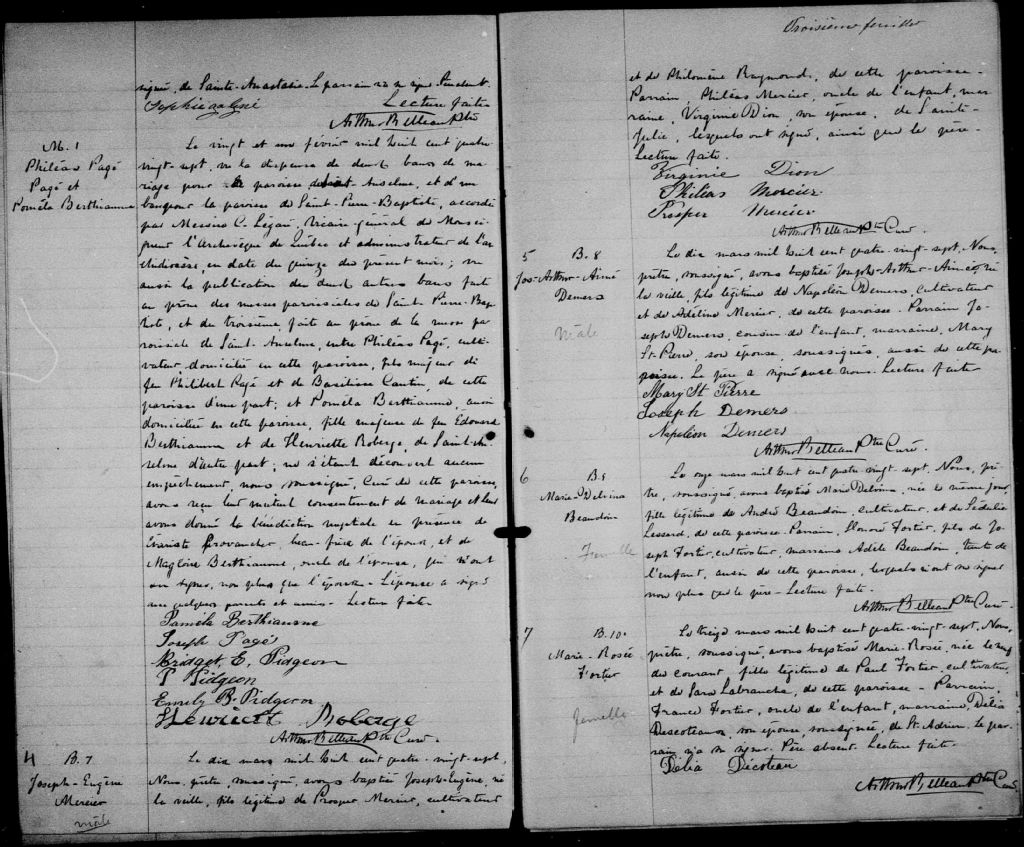 signé, de Sainte-Anastasie. Le parrain n'a su signer.
Lecture faite
Arthur Belleau Ptre
M. 1
Philéas Pagé
Pagé et
Paméla Berthiaume
Le vingt et un février mil huit cent quatre
vingt-sept, vu la dispense de deux bans de ma
riage pour la paroisse de Saint-Anselme, et d'un
ban pour la paroisse de Saint-Pierre-Baptiste, accordée
par Messire C. Légaré, Vicaire-général de Monsei
gneur l'Archevêque de Québec et administrateur de l'ar
chidiocèse, en date du quinze du présent mois; vu
aussi la publication des deux autres bans fait
au prône des messes paroissiales de Saint-Pierre-Bap
tiste, et du troisième, faite au prône de la messe pa
roissiale de Saint-Anselme, entre Philéas Pagé, culti-
vateur, domicilié en cette paroisse, fils majeur de
feu Philibert Pagé et de Basilisse Cantin, de cette
paroisse d'une part; et Paméla Berthiaume, aussi
domiciliée en cette paroisse, fille majeure de feu Édouard
Berthiaume et de Henriette Roberge, de Saint-An
selme d'autre part; ne s'étant découvert aucun
empêchement, nous soussigné, Curé de cette paroisse,
avons reçu leur mutuel consentement de mariage et leur
avons donné la bénédiction nuptiale en présence de
Évariste Provancher, beau-frère de l'époux, et de
Magloire Berthiaume, oncle de l'épouse, qui n'ont
su signer, non plus que l'époux. L'épouse a signé
avec quelques parents et amis. Lecture faite.
Paméla Berthiaume
Joseph Pagé
Bridget, E, Pidgeon
P Pidgeon
Emily B. Pidgeon
Henriett Roberge
Arthur Belleau Ptre Curé.
4
B. 7
Joseph-Eugène
Mercier
mâle
Le dix mars mil huit cent quatre-vingt-sept,
Nous, prêtre, soussigné, avons baptisé Joseph-Eugène, né
la veille, fils légitime de Prosper Mercier, cultivateur
Troisième feuillet
et de Philomène Raymond, de cette paroisse.
Parrain, Philéas Mercier, oncle de l'enfant, mar
raine, Virginie Dion, son épouse, de Sainte-
Julie, lesquels ont signé, ainsi que le père.
Lecture faite.
Virginie Dion
Philéas Mercier
Prosper Mercier
Arthur Belleau Ptre Curé.
5
B. 8
Jos-Arthur-Aimé
Demers
mâle
Le dix mars mil huit cent quatre-vingt-sept, Nous,
prêtre, soussigné, avons baptisé Joseph-Arthur-Aimé, né
la veille, fils légitime de Napoléon Demers, cultivateur
et de Adéline Mercier, de cette paroisse. Parrain Jo
seph Demers, cousin de l'enfant, marraine, Mary
St-Pierre, son épouse, soussignés, aussi de cette pa
roisse. Le père a signé avec nous. Lecture faite
Mary St Pierre
Joseph Demers
Napoléon Demers
Arthur Belleau Ptre Curé.
6
B. 9
Marie-Delvina
Beaudoin
Femelle
Le onze mars mil huit cent quatre vingt-sept, Nous, prê
tre, soussigné, avons baptisé Marie Delvina, née le même jour,
fille légitime de André Beaudoin, cultivateur, et de Sédélie
Lessard, de cette paroisse. Parrain, Honoré Fortier, fils de Jo
seph Fortier, cultivateur, marraine Adèle Beaudoin, tante de
l'enfant, aussi de cette paroisse, lesquels n'ont su signer
non plus que le père. Lecture faite.
Arthur Belleau Ptre Curé.
7
B. 10
Marie-Rosée
Fortier
femelle
Le treize mars mil huit cent quatre-vingt-sept, Nous,
prêtre, soussigné, avons baptisé Marie-Rosée, née le neuf
du courant, fille légitime de Paul Fortier, cultivateur,
et de Sara Labranche, de cette paroisse. Parrain,
France Fortier, oncle de l'enfant, marraine, Délia
Descoteaux, son épouse, soussignée, de St-Adrien. Le par
rain n'a su signer. Père absent. Lecture faite.
Délia Décoteau
Arthur Belleau Ptre Curé